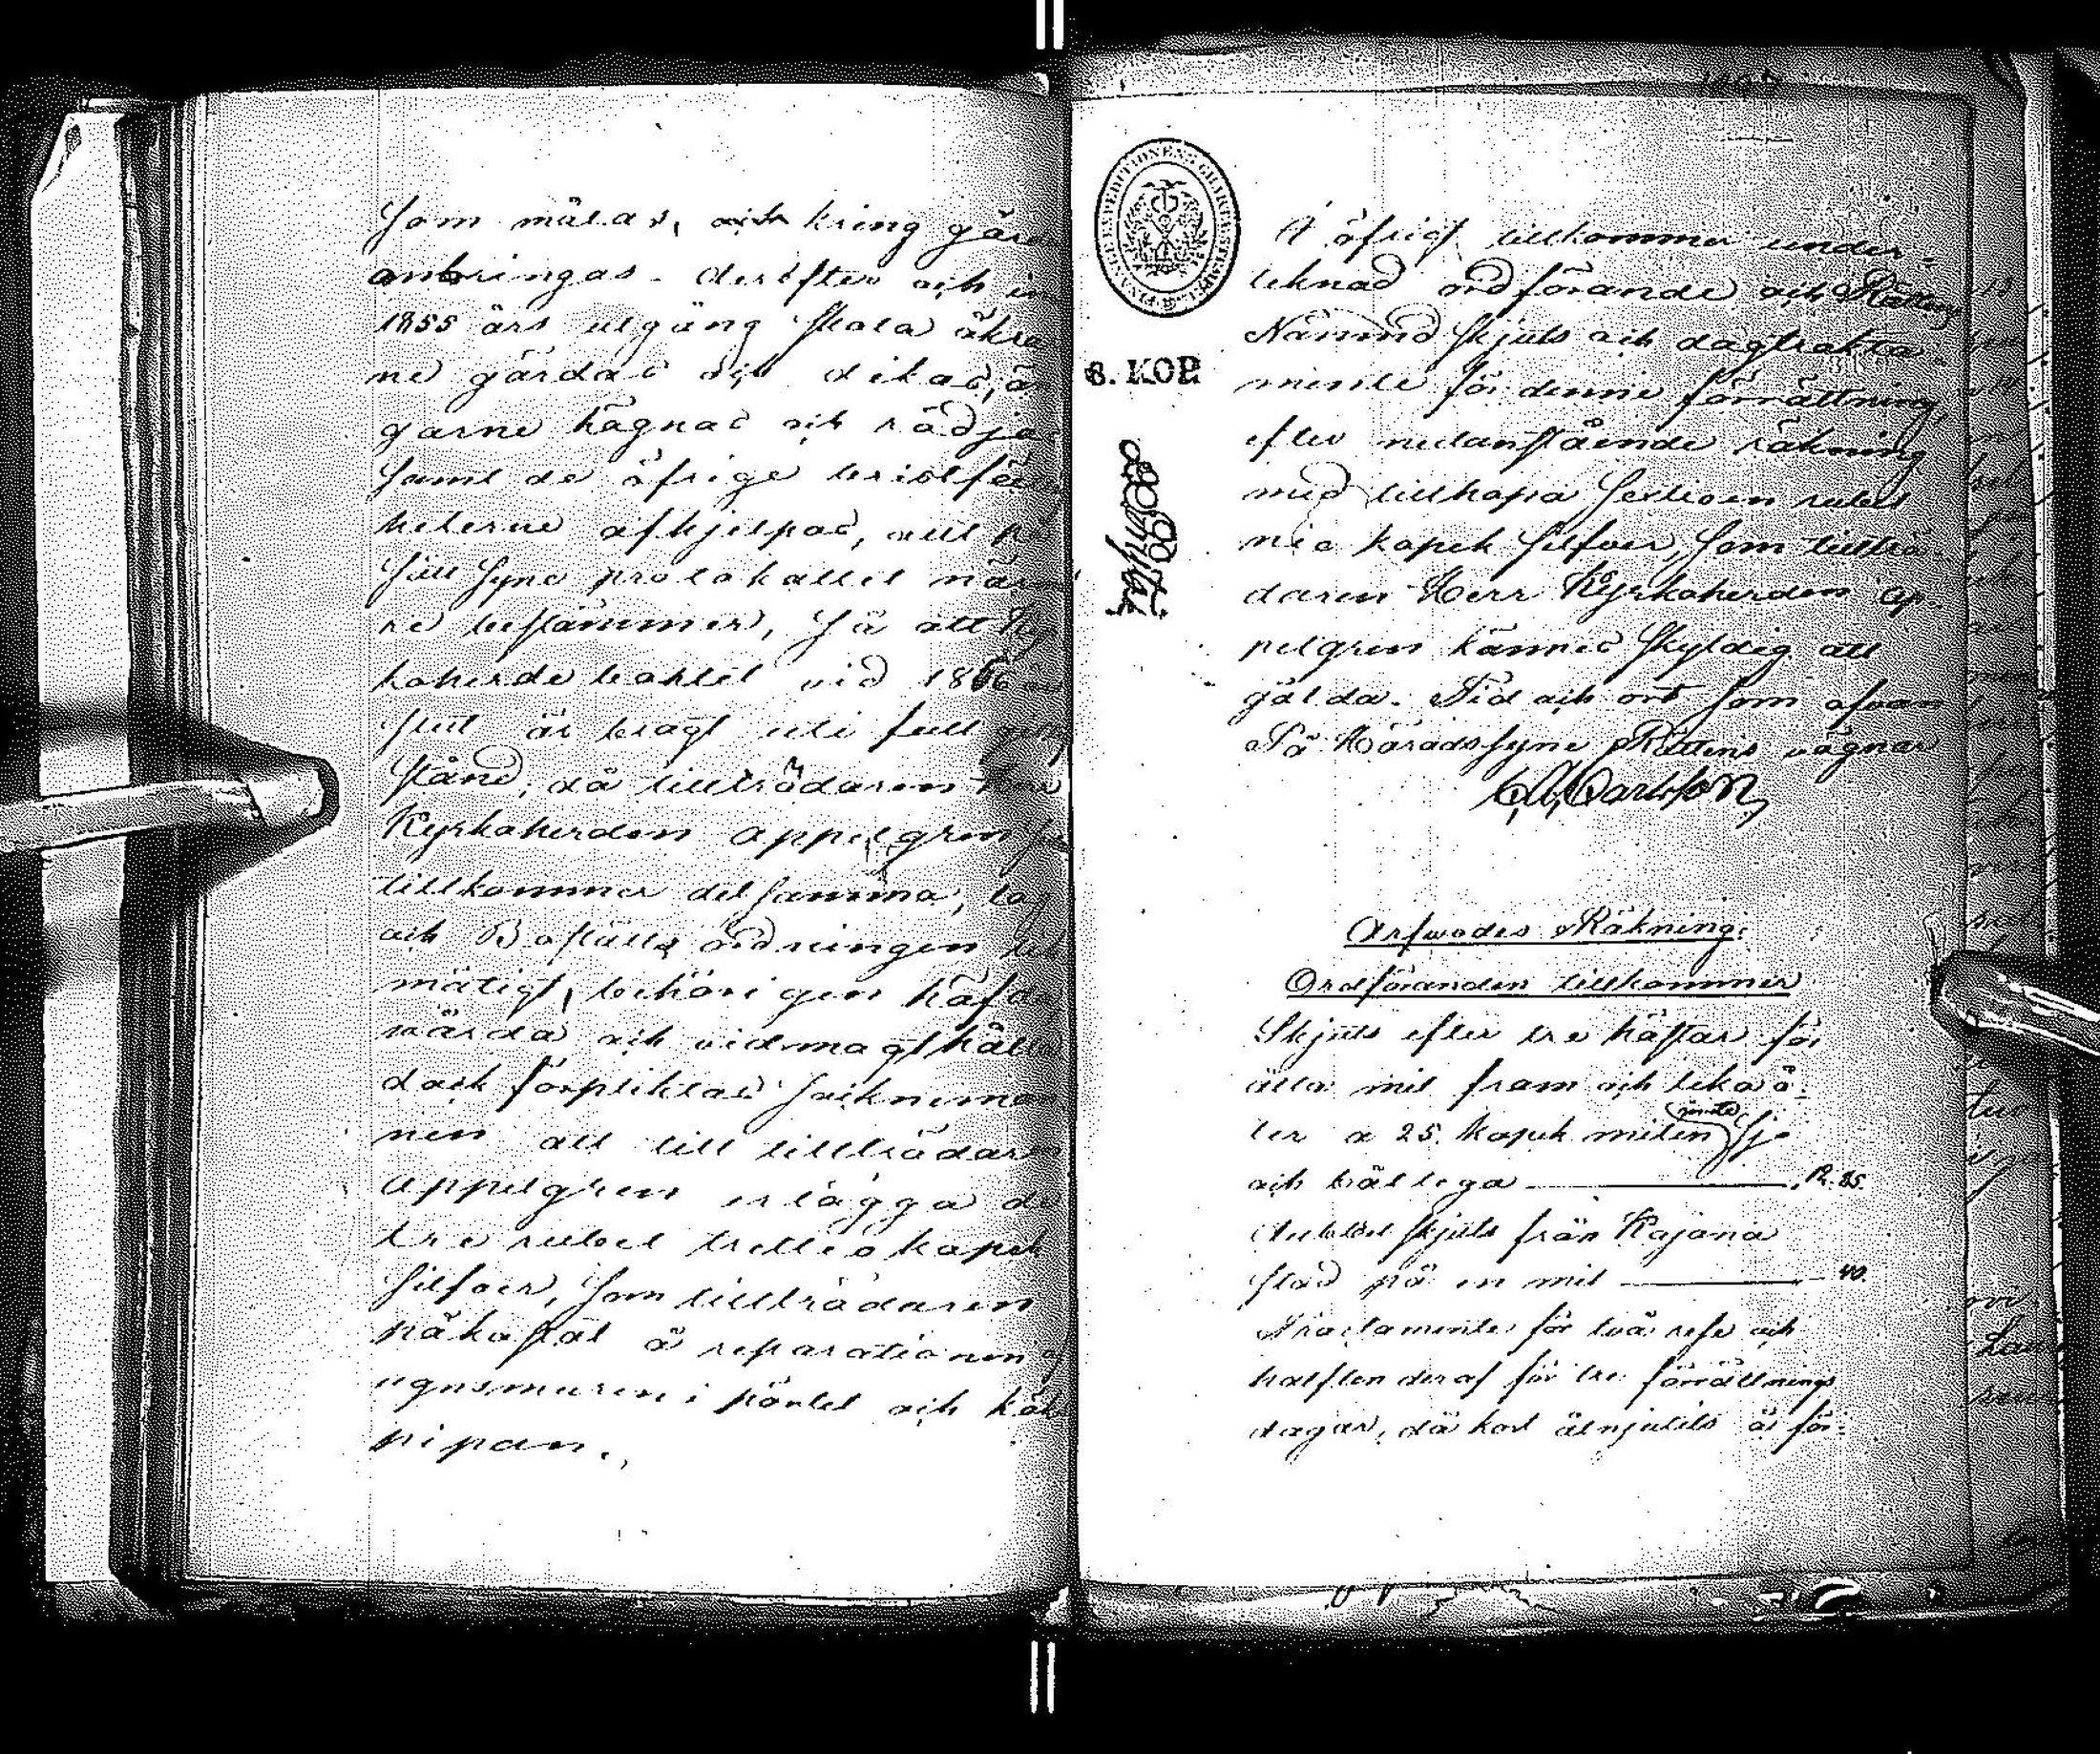 som målas, och kring gärd
anbringas. Derefter och in
1855 års utgång skola åkra
ne gärdas och dikas, än
garne hägnas och rödjas
samt de öfrige bristfäl
heterne afhjelpas, allt på
sätt syne protokollet närm
re bestämmer, så att Kyr
koherde bohlet vid 1856 års
slut är bragt uti full
stånd, då tillträdaren Herr
Kyrkoherden Appelgren
tillkommer detsamma, lag
och Boställs ordningen lik
mätigt, behörigen häfda
wårda och vidmagthålla
dock förpliktas Sockneman
nen att till tillträdaren
Appelgren erlägga de
tre rubel trettio kopek
silfver, som tillträdaren
påkostat å reparationen af
ugnsmuren i pörtet och kök
pipan.
FINANTS-EXPEDITIONENS CHARTÆ SIGILL
8. KOP.
I öfrigt tillkommer under-
teknad ordförande och Rättens
Nämnd skjuts och dagtrakta-
mente för denne förrättning,
efter nedanstående räkning
med tillhopa sextioen rubel
nio kopek silfver, som tillträ-
daren Herr Kyrkoherden Ap-
pelgren kännes skyldig att
gälda. Tid och ort som ofvan
På Häradssyne Rättens vägnar
Carlsson
Arfwodes Räkning:
Ordföranden tillkommer
Skjuts efter tre hästar för
åtta mil fram och lika å-
ter a 25. kopek milen jemte sjö
och båtlega R. 85.
Dubbel skjuts från Kajana
stad på en mil 40.
Tractamente för två rese och
halften deraf för tre förrättnings
dagar, då kost åtnjutits är för-